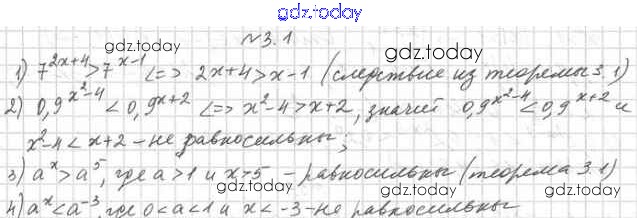 gdz.today
№3.1
gdz.today gdz.today
1) 7^{2x+4}>7^{x-1} <=> 2x+4>x-1 (следствие из теоремы 3.1)
2) 0,9^{x²-4}<0,9^{x+2} <=> x²-4>x+2, значит 0,9^{x²-4}<0,9^{x+2} и
x²-4<x+2 – не равносильны;
gdz.today gdz.today
3) a^x>a^5, где a>1 и x>5 – равносильны (теорема 3.1)
gdz.today gdz.today
4) a^x<a^{-3}, где 0<a<1 и x<-3 – не равносильны